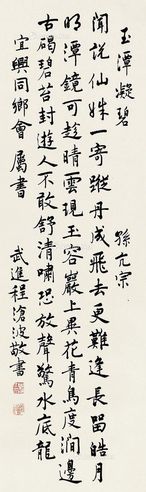 玉潭凝碧 孫亢宗
聞說仙姝一寄蹤丹成飛去更難逢長留皓月
明潭鏡可趁晴雲現玉容巖上異花青鳥度澗邊
古碣碧苔封遊人不敢舒清嘯恐放聲驚水底龍
宜興同鄉會屬書
武進程滄波敬書